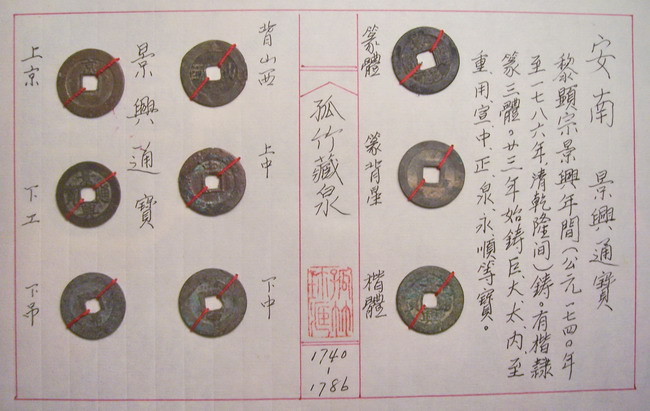 安南 景興通寶
黎顯宗景興年間（公元一七四〇年
至一七八六年，清乾隆间）鋳。有楷隸
篆三體。廿三年始鋳巨、大、太、内、至
重、用、宣、中、正、泉、永、順等寶。
篆體
篆背星
楷體
孤竹藏泉
1740
-
1786
背山西
上中
下中
景興通寶
上京
下工
下吊